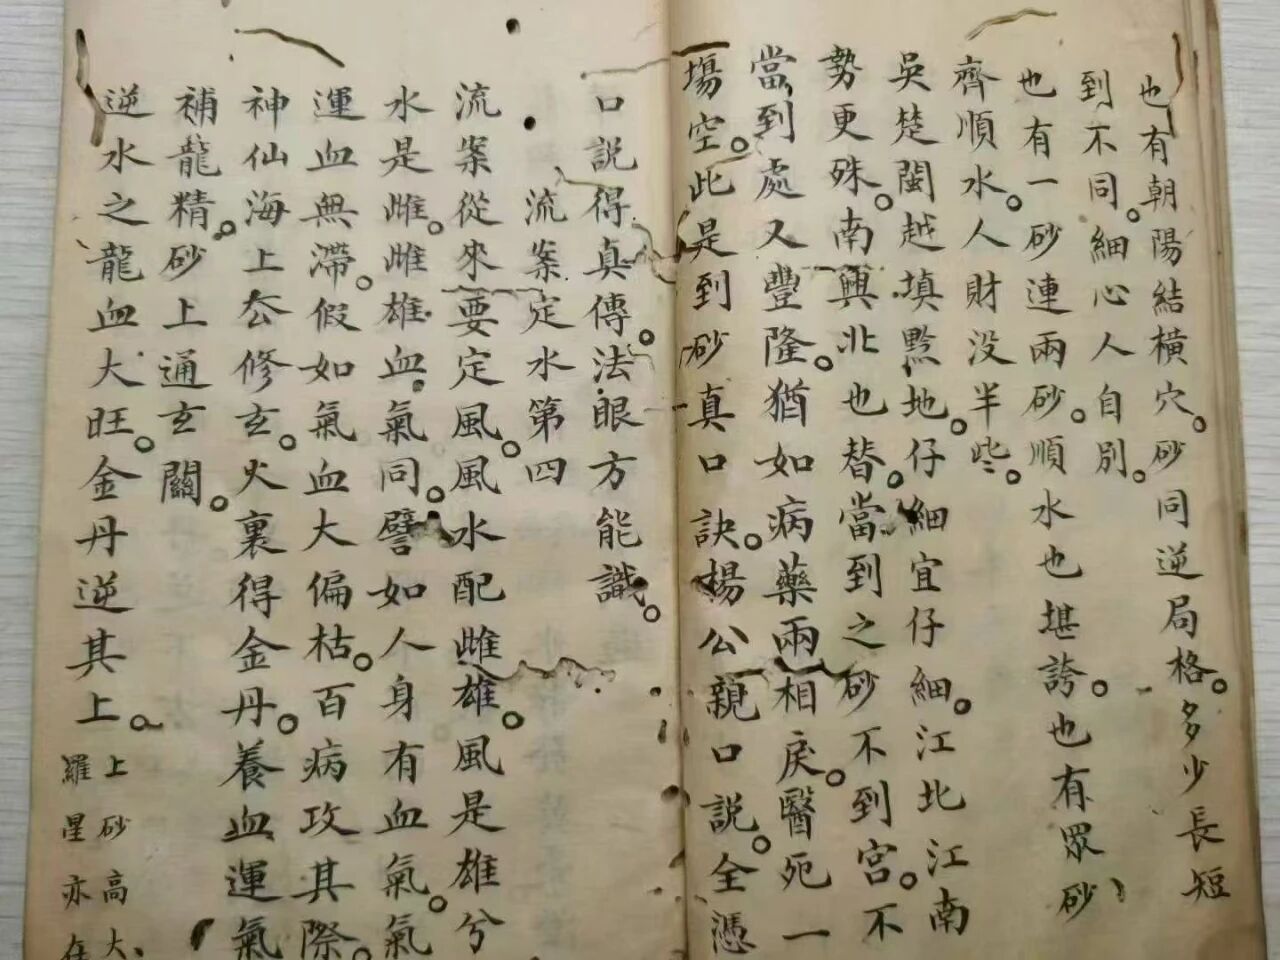 也有朝陽結橫穴。砂同逆局格。多少長短
到不同。細心人自別。
也有一砂連兩砂。順水也堪誇。也有眾砂
齊順水。人財没半些。
吳楚閩越填黔地。仔細宜仔細。江北江南
勢更殊。南興北也替。當到之砂不到宮。不
當到處又豐隆。猶如病藥兩相戾。醫死一
塲空。此是到砂真口訣。楊公親口説。全憑
口説得真傳。法眼方能識。
流案定水第四
流案從來要定風。風水配雌雄。風是雄兮
水是雌。雌雄血氣同。譬如人身有血氣。氣
運血無滯。假如氣血大偏枯。百病攻其際。
神仙海上夳修玄。火裏得金丹。養血運氣
補龍精。砂上通玄關。
逆水之龍血大旺。金丹逆其上。
上砂高大
羅星亦在